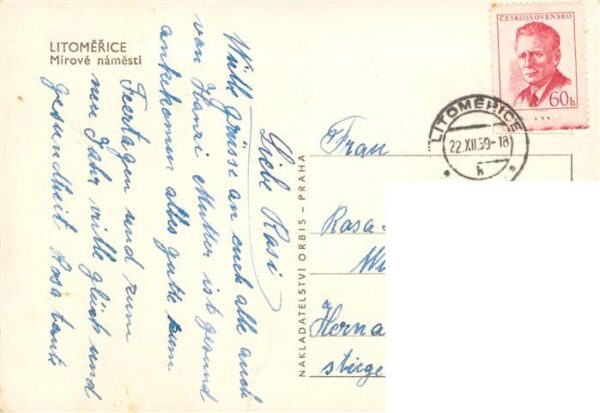 LITOMĚŘICE
Mírové náměstí
Liebe Rasi
Wülle Grüse an euch alle auch
von Hanri Mutter ist gesund
ankekomen alles gute zum
Feertagen und zum
neu Jahr viille glück und
gesundheit Rosa tante
NAKLADATELSTVÍ ORBIS – PRAHA
ČESKOSLOVENSKO
60h
LITOMĚŘICE
22.XII.59-18
h
Frau
Rosa
Wi
Herna
stirge